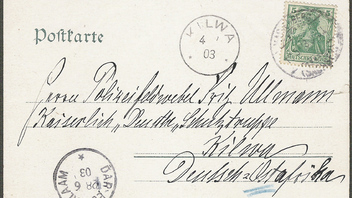 Postkarte
KILWA
4
03
Herrn Polizeifeldwebel Fritz Ullmann
Kaiserlich Deutsche Schutztruppe
Kilwa
Deutsch-Ostafrika
DAR-ES-SALAAM
6
03